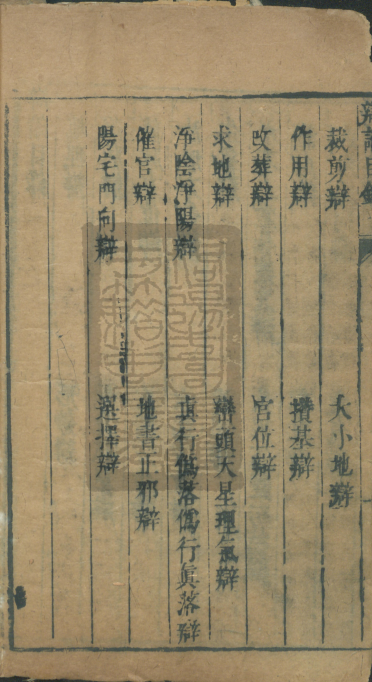 裁剪辯 大小地辯
作用辯 攢基辯
改葬辯 官位辯
求地辯 巒頭天星理氣辯
淨陰淨陽辯 眞行僞落僞行眞落辯
催官辯 地書正邪辯
陽宅門向辯 選擇辯